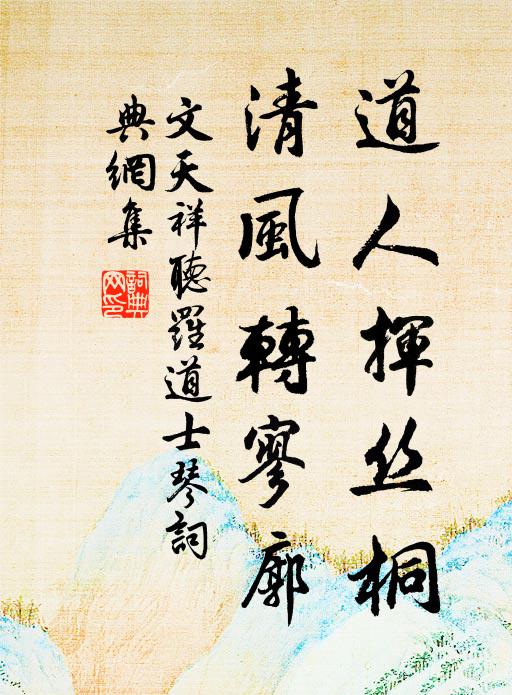 道人揮丝桐
清風轉寥廓
文天祥聽羅道士琴詞
典網集
詞典
网印